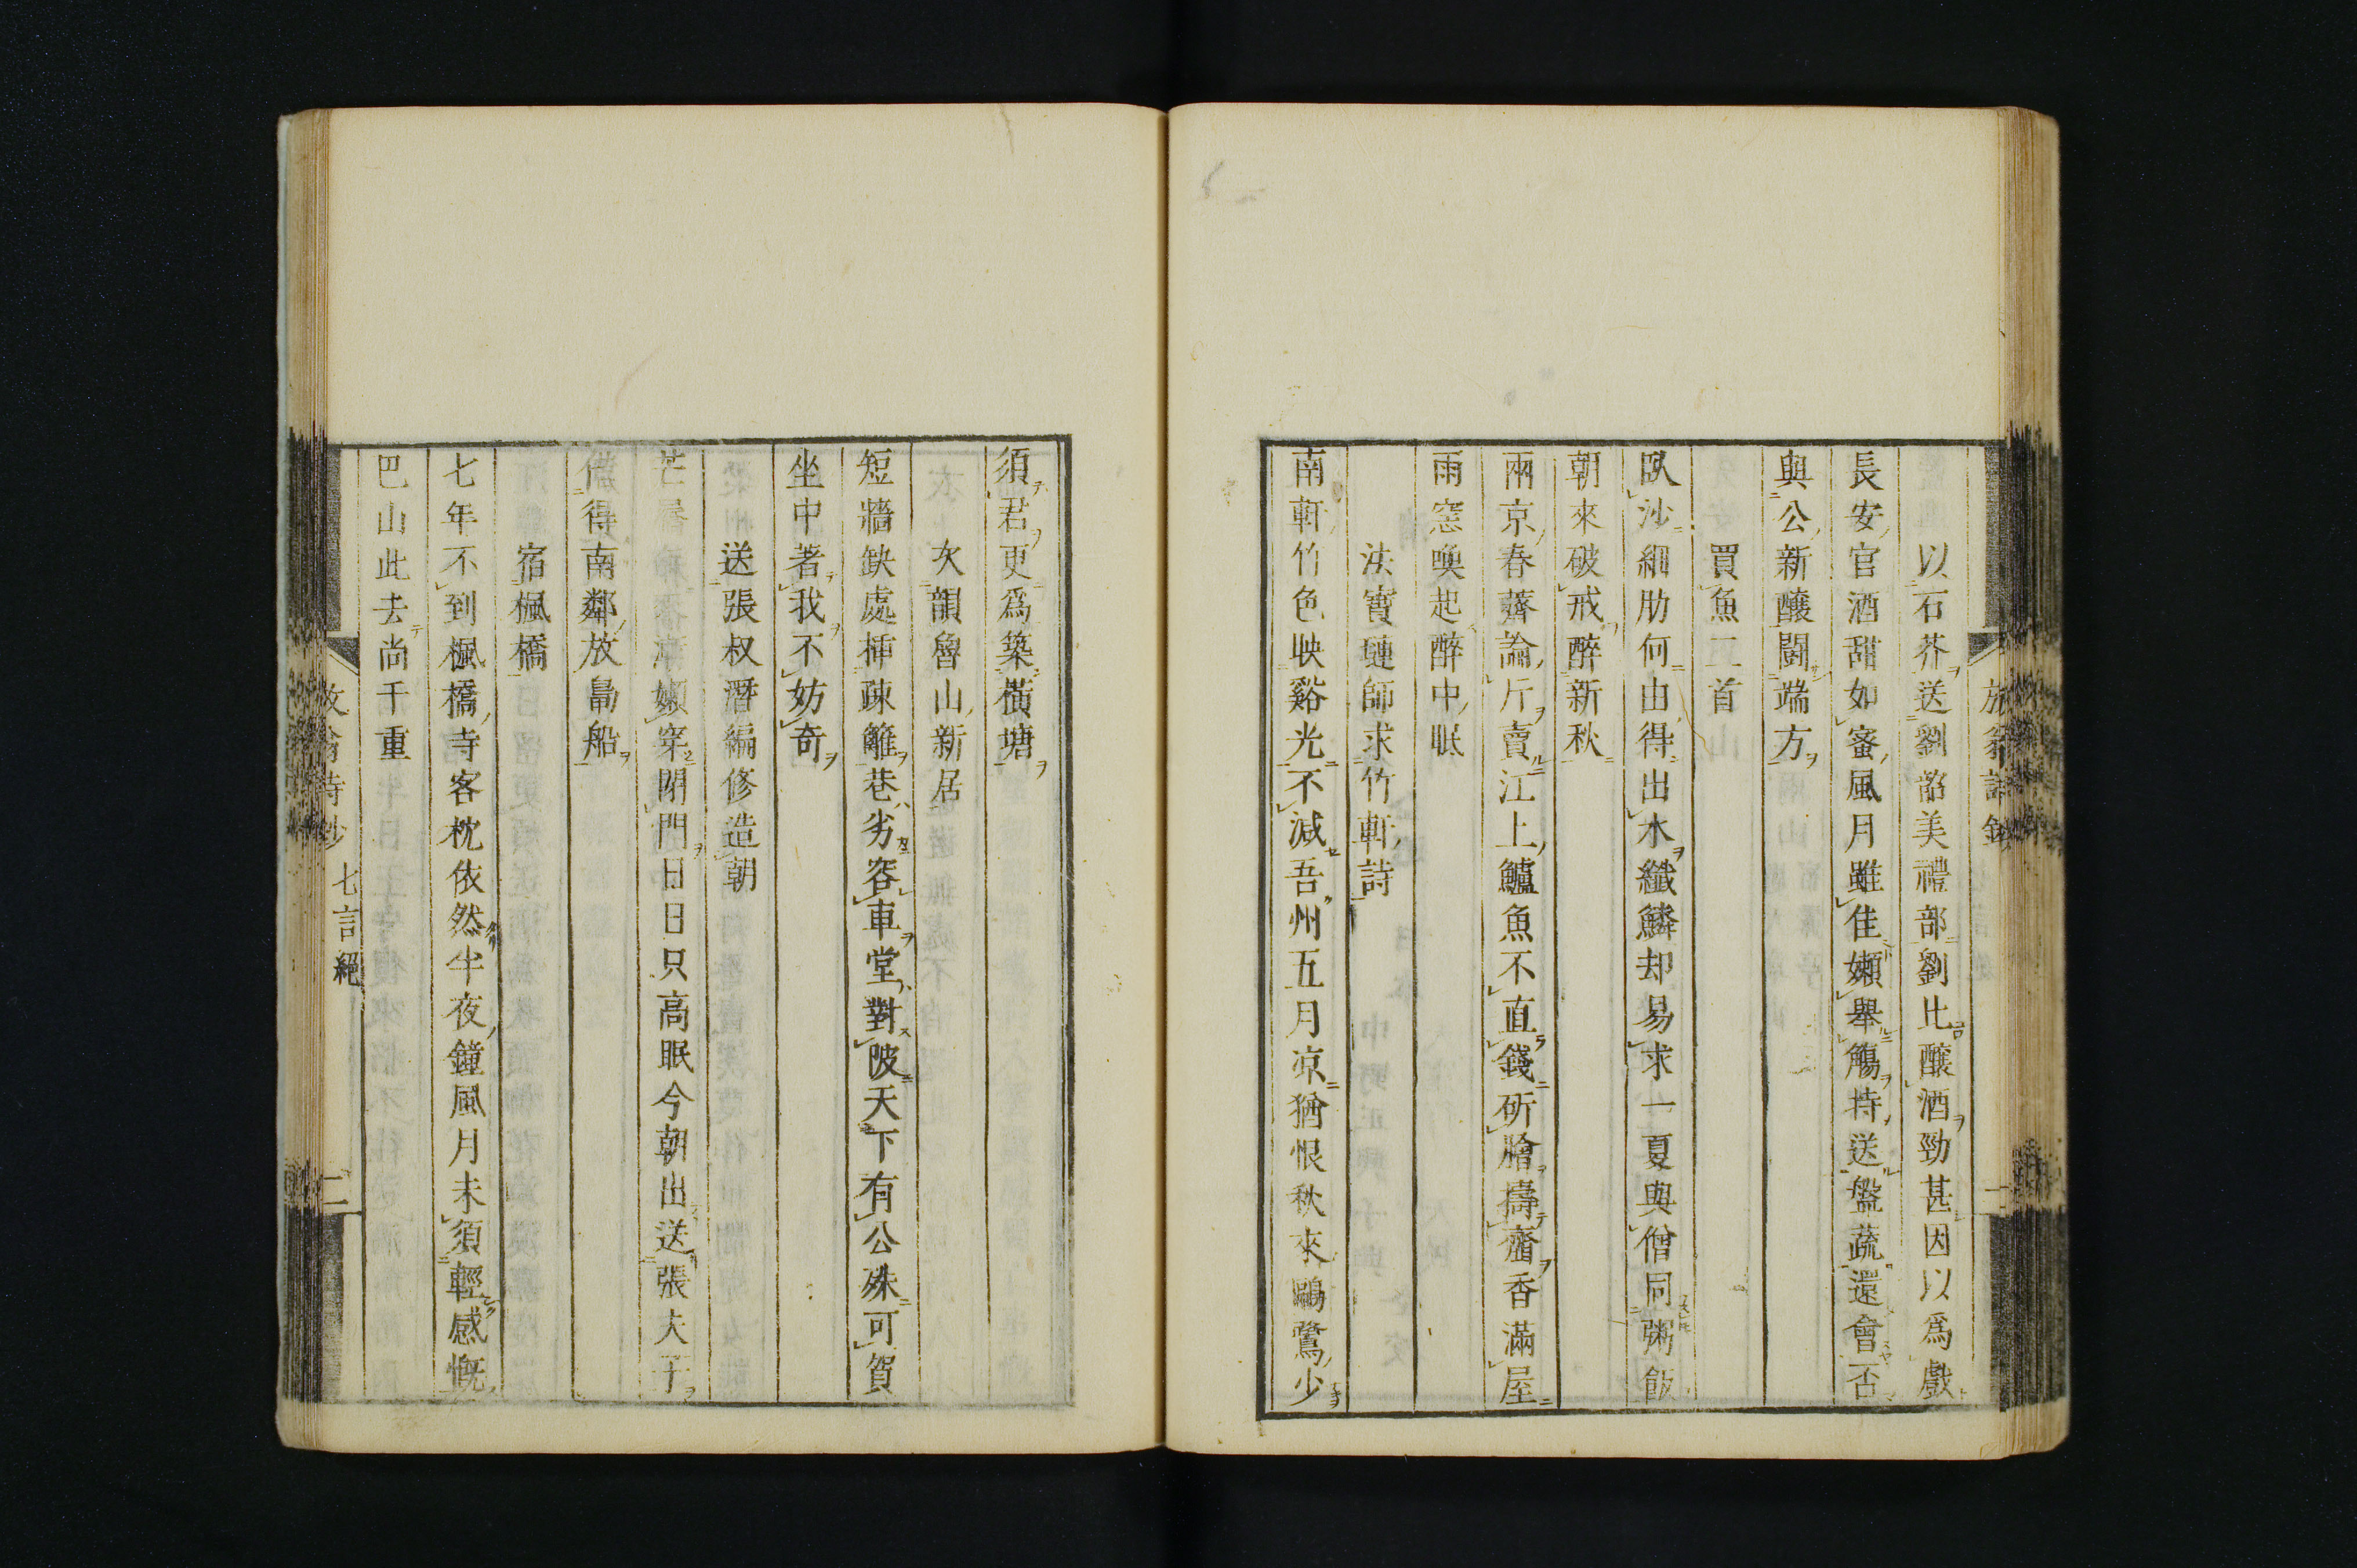 以石芥送劉韶美禮部劉比釀酒勁甚因以爲戲
長安官酒甜如蜜風月雖佳嬾舉觴持送盤蔬還會否
與公新釀鬪端方
買魚二首
臥沙細肋何由得出水纖鱗却易求一夏與僧同粥飯
朝來破戒醉新秋
兩京春薺論斤賣江上鱸魚不直錢斫膾擣虀香滿屋
雨窓喚起醉中眠
法寶璉師求竹軒詩
南軒竹色映谿光不減吾州五月凉猶恨秋來鷗鷺少
須君更爲築橫塘
次韻魯山新居
短牆缺處揷疎籬巷劣容車堂對陂天下有公殊可賀
坐中著我不妨奇
送張叔潛編修造朝
芒屩嬾穿閉門日日只高眠今朝出送張夫子
借得南鄰放鳧船
宿楓橋
七年不到楓橋寺客枕依然半夜鐘風月未須輕感慨
巴山此去尚千重
放翁詩鈔 七言絕 二